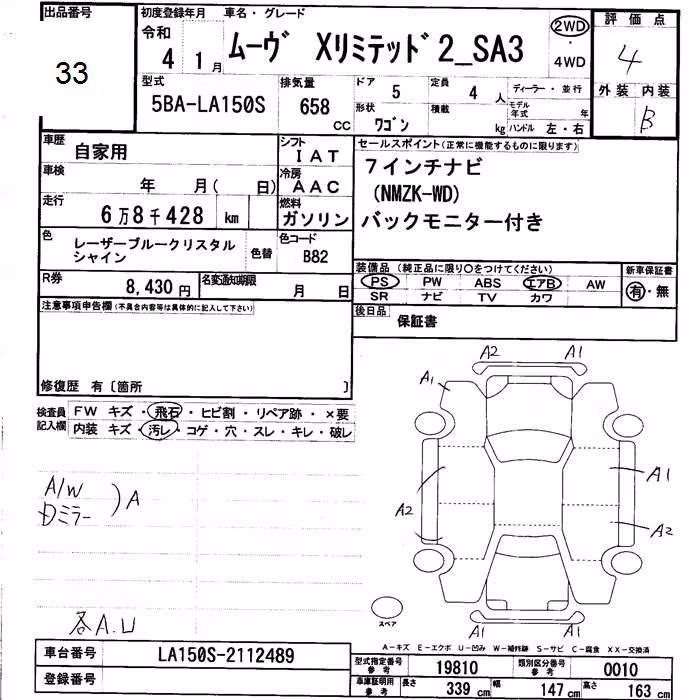 出品番号 初度登録年月 車名・グレード 2WD 評価点
33 令和 4 1月 ムーヴ Xリミテッド2_SA3 ・ 4WD 4
型式 排気量 ドア 定員 ディーラー・並行 外装 内装
5BA-LA150S 658 CC 5 4 人 モデル年式 年 B
形状 積載 kg ハンドル 左・右
ワゴン
車歴 自家用 シフト IAT セールスポイント(正常に機能するものに限ります)
車検 年 月( 日) 冷房 AAC 7インチナビ
(NMZK-WD)
走行 6万8千428 km 燃料 ガソリン バックモニター付き
色 レーザーブルークリスタル 色替 色コード
シャイン B82
装備品(純正品に限り○をつけてください) 新車保証書
R券 8,430円 名変通知期限 月 日 PS PW ABS エアB AW 有・無
SR ナビ TV カワ
注意事項申告欄(不具合内容等は具体的に記入して下さい) 後日品 保証書
修復歴 有〔箇所 〕
検査員 FW キズ・飛石・ヒビ割・リペア跡・×要
記入欄 内装 キズ・汚レ・コゲ・穴・スレ・キレ・破レ
A2 A1
A1
A1
A2
A2
A1 A1
A/W
Dミラー )A
各A.U
スペア
A-キズ E-エクボ U-凹み W-補修跡 S-サビ C-腐食 XX-交換済
車台番号 LA150S-2112489 型式指定番号 参考 19810 類別区分番号 参考 0010
登録番号 車庫証明用 参考 長さ 339 cm 幅 147 cm 高さ 163 cm